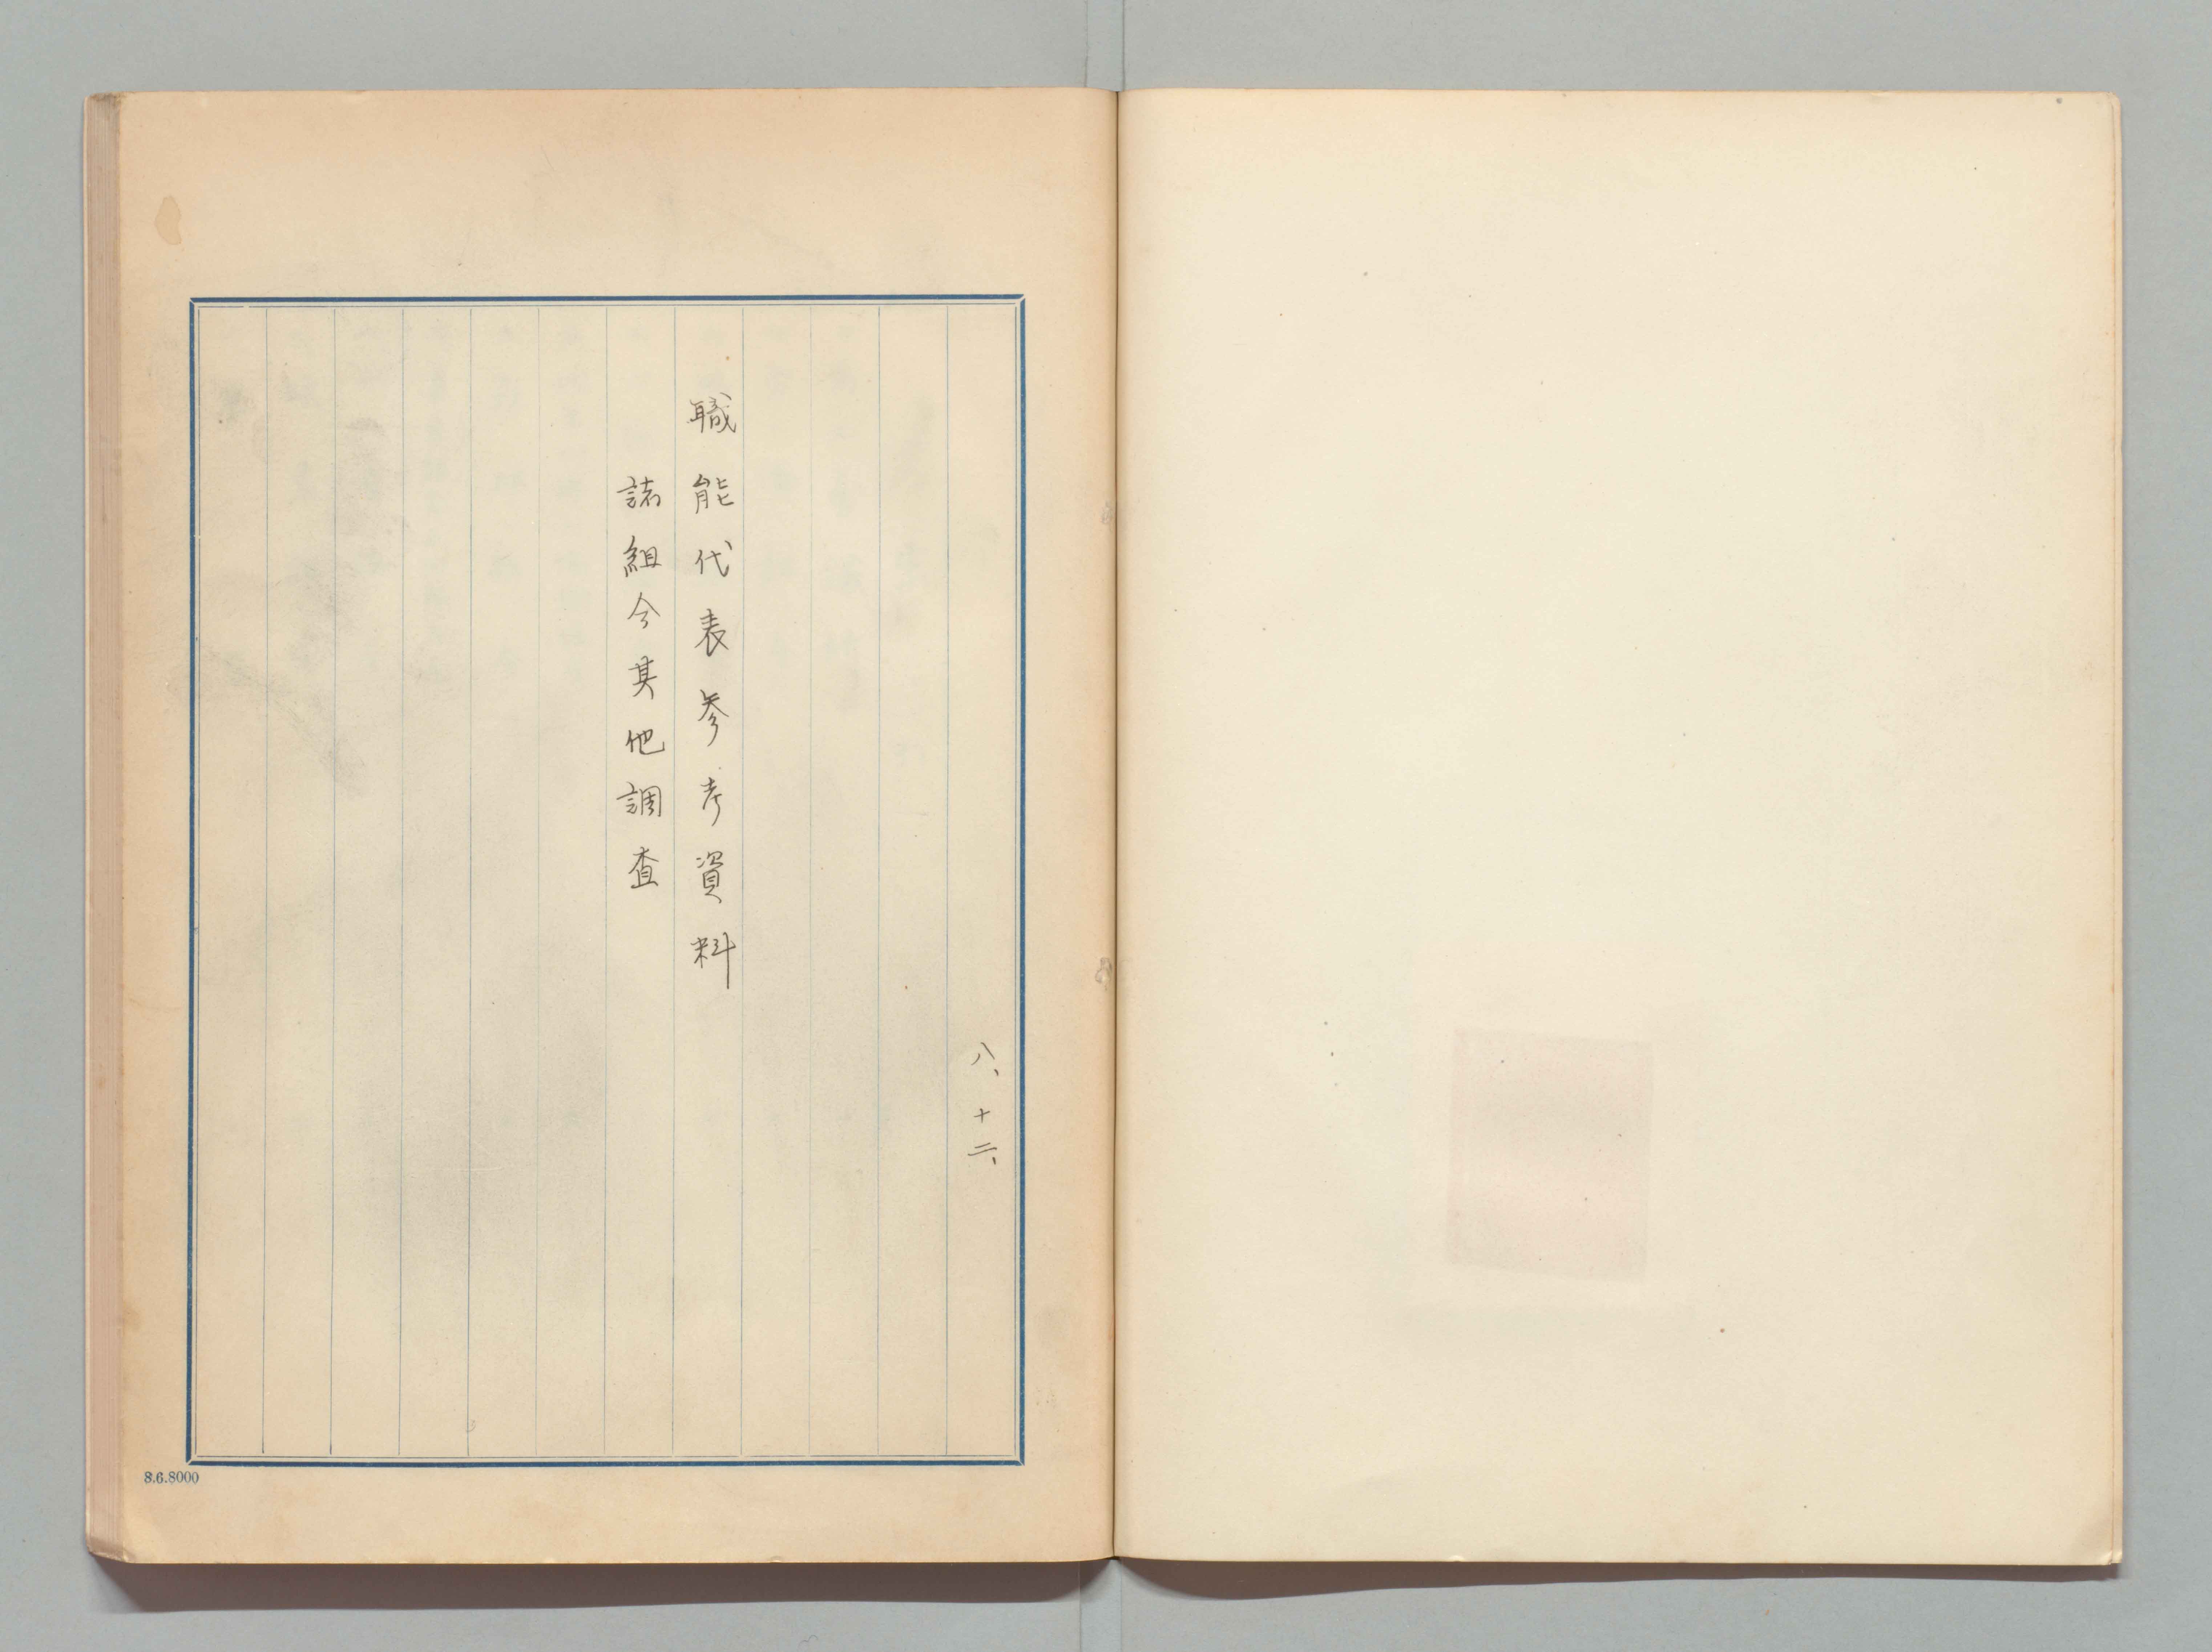 八、十二、
職能代表参考資料
諸組合其他調査
8.6.8000